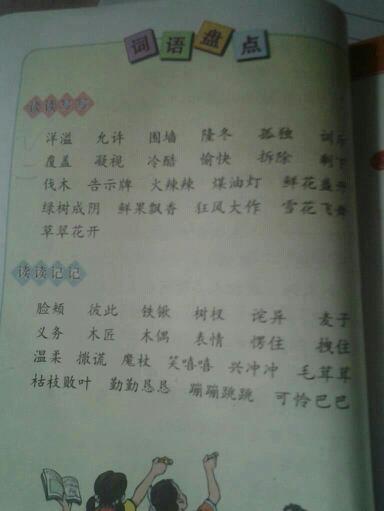 词语盘点
读读写写
洋溢 允许 围墙 隆冬 孤独 训斥
覆盖 凝视 冷酷 愉快 拆除 剩下
伐木 告示牌 火辣辣 煤油灯 鲜花盛开
绿树成阴 鲜果飘香 狂风大作 雪花飞舞
草翠花开
读读记记
脸颊 彼此 铁锹 树杈 诧异 麦子
义务 木匠 木偶 表情 愣住 拽住
温柔 撒谎 魔杖 笑嘻嘻 兴冲冲 毛茸茸
枯枝败叶 勤勤恳恳 蹦蹦跳跳 可怜巴巴